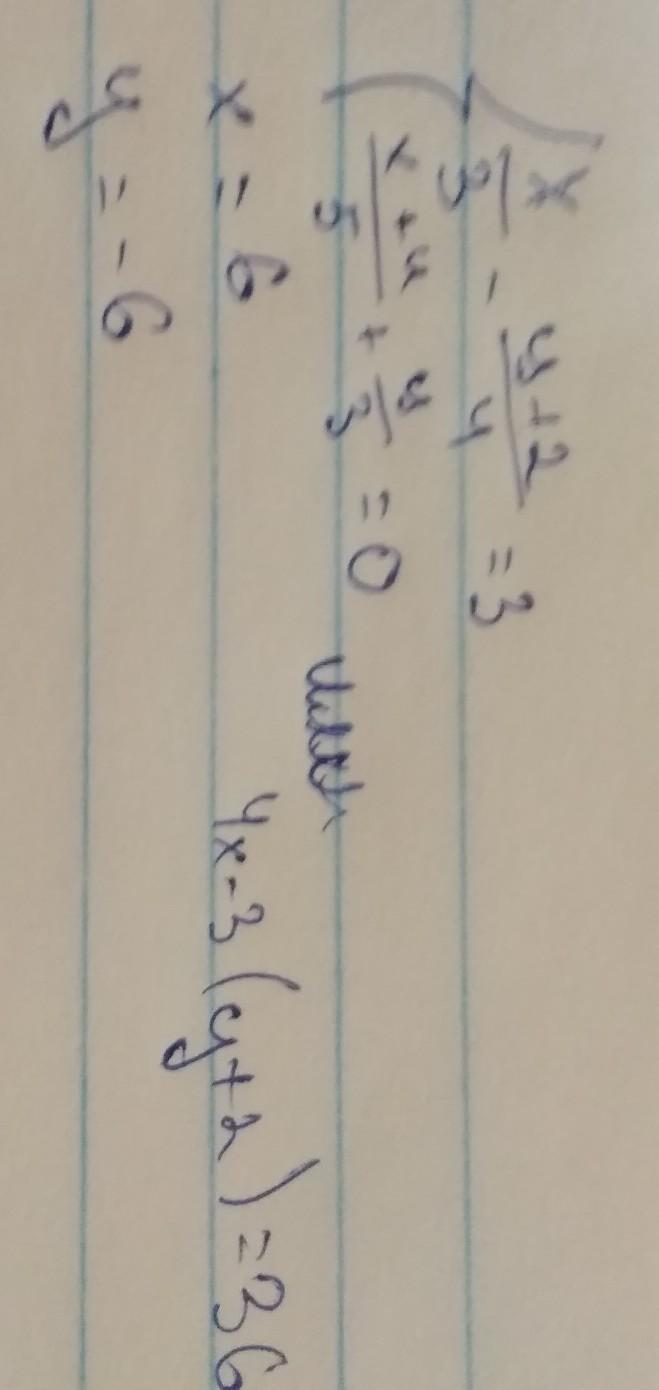 x/3 - (y+2)/4 = 3
(x+4)/5 + y/3 = 0
x = 6
4x-3(y+2)=36
y = -6